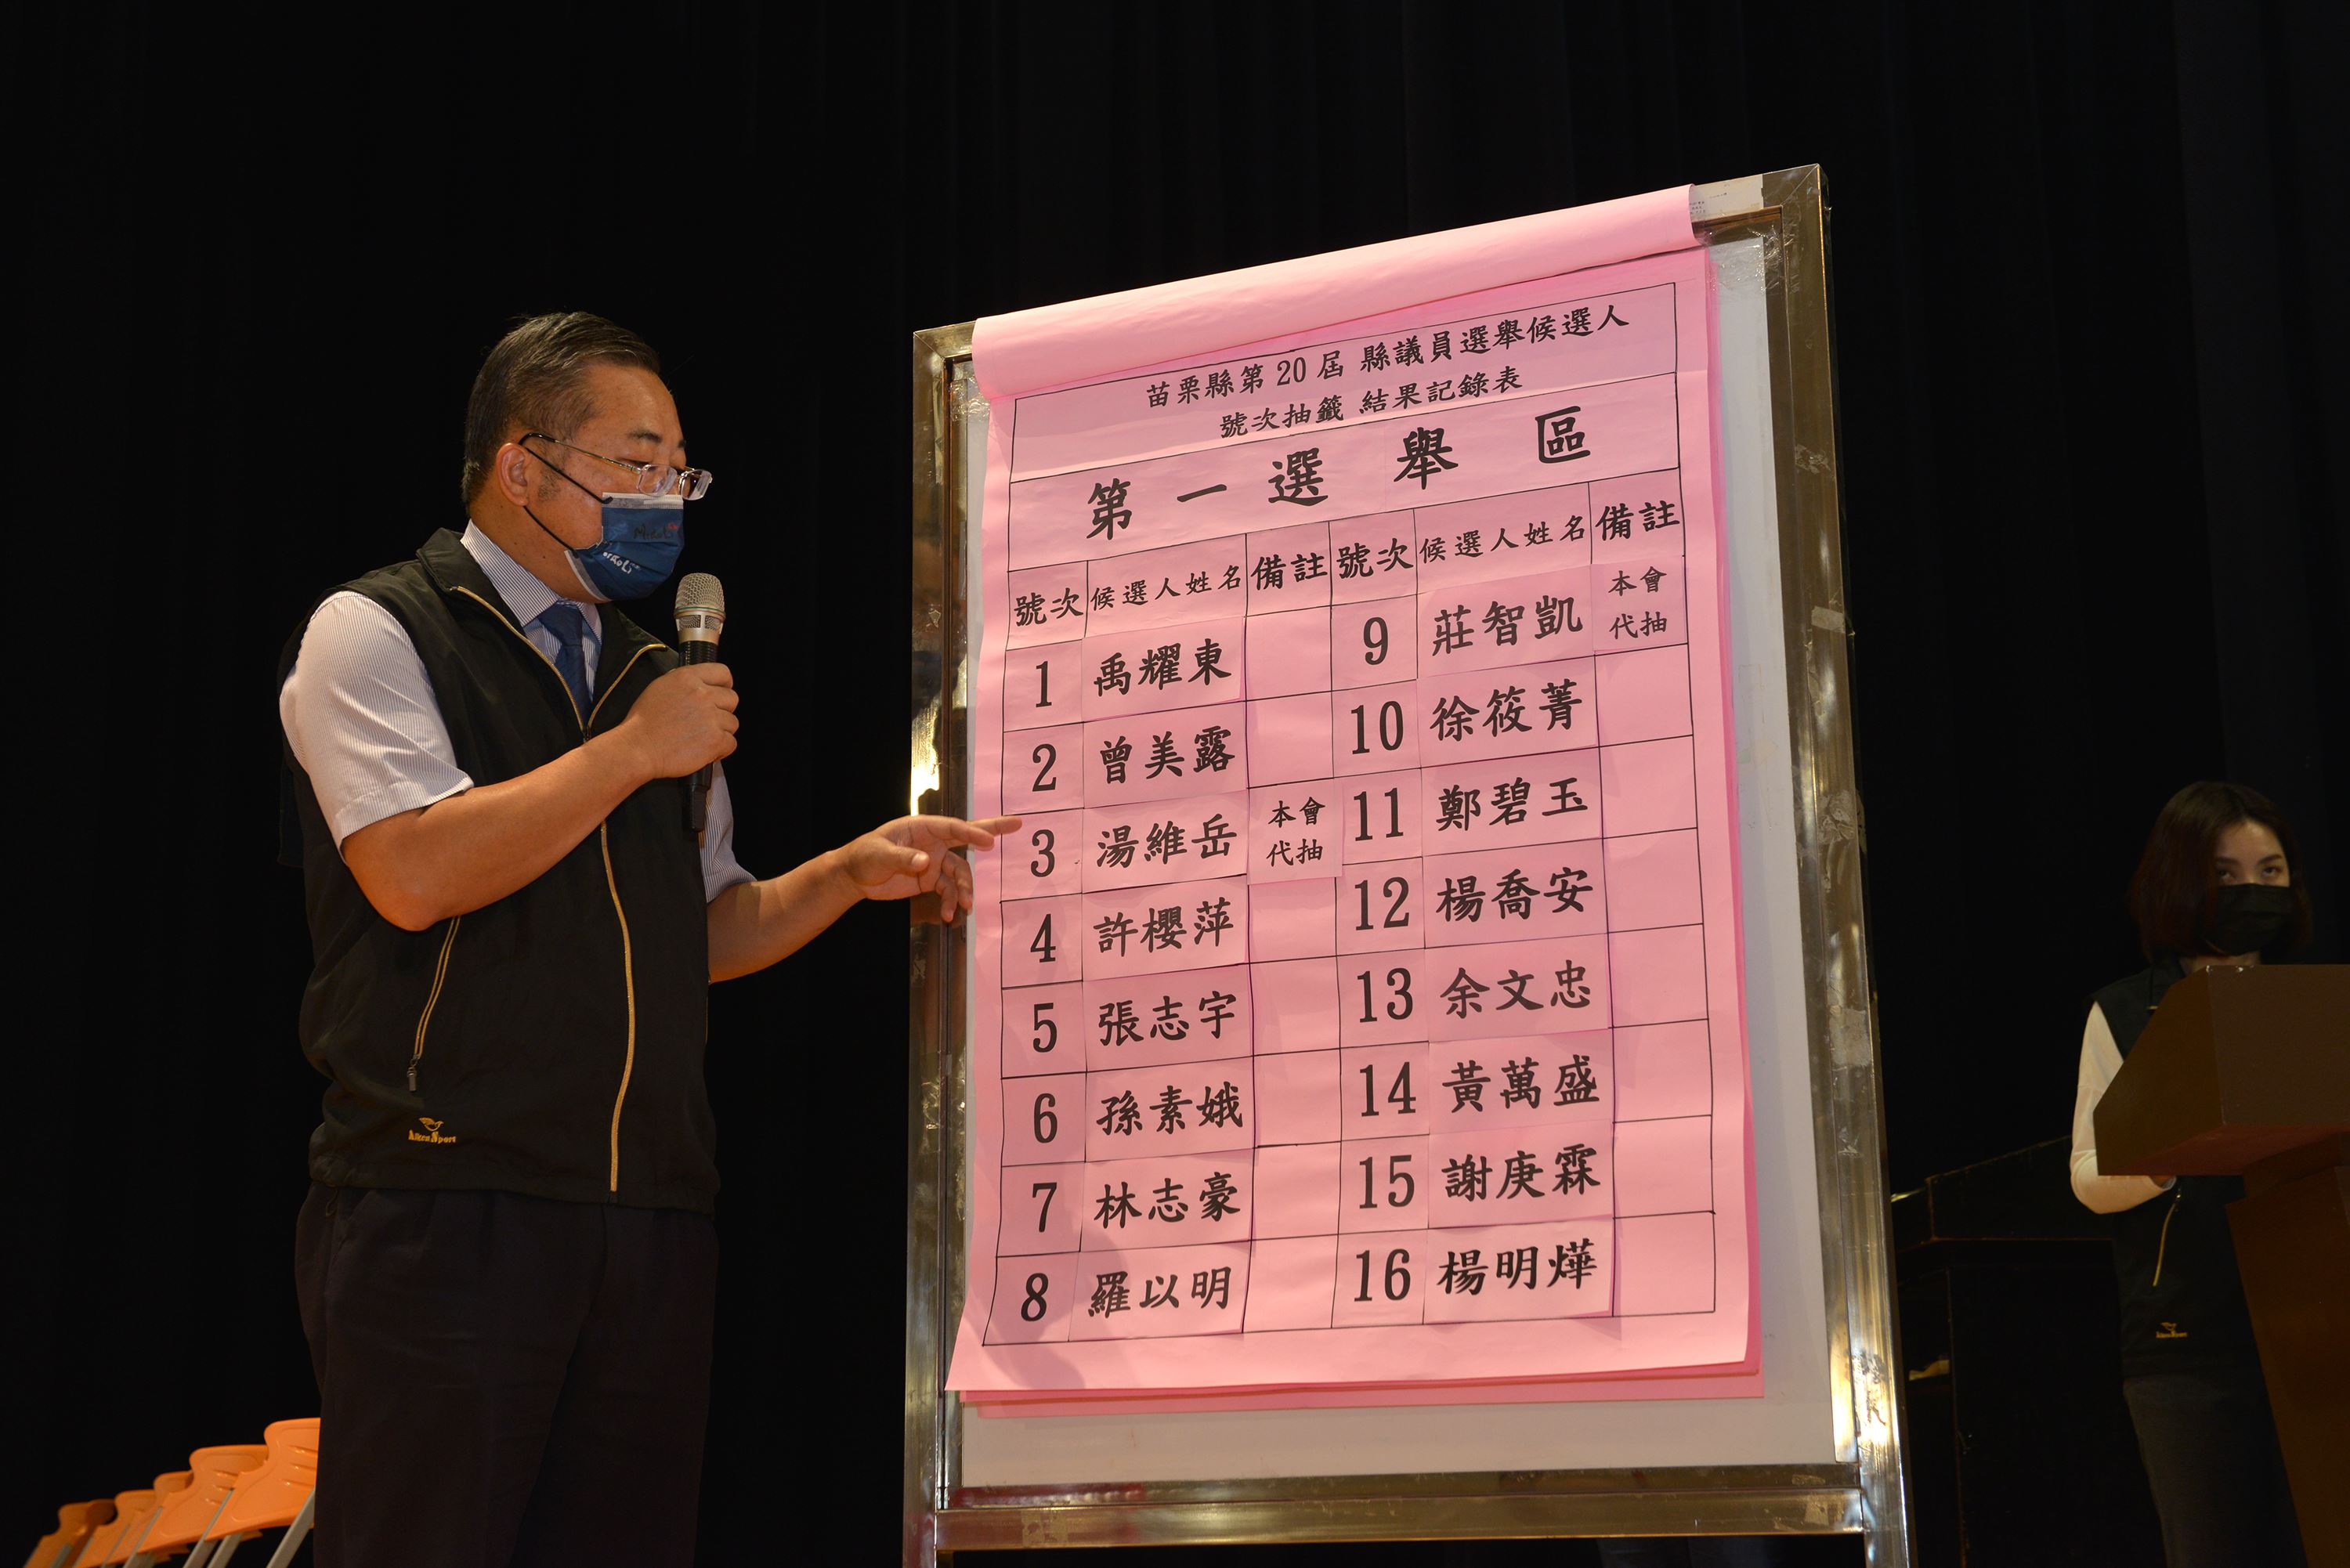 苗栗縣第20屆 縣議員選舉候選人
號次抽籤 結果記錄表
第一選舉區
號次 候選人姓名 備註 號次 候選人姓名 備註
1 禹耀東 9 莊智凱 本會代抽
2 曾美露 10 徐筱菁
3 湯維岳 本會代抽 11 鄭碧玉
4 許櫻萍 12 楊喬安
5 張志宇 13 余文忠
6 孫素娥 14 黃萬盛
7 林志豪 15 謝庚霖
8 羅以明 16 楊明燁